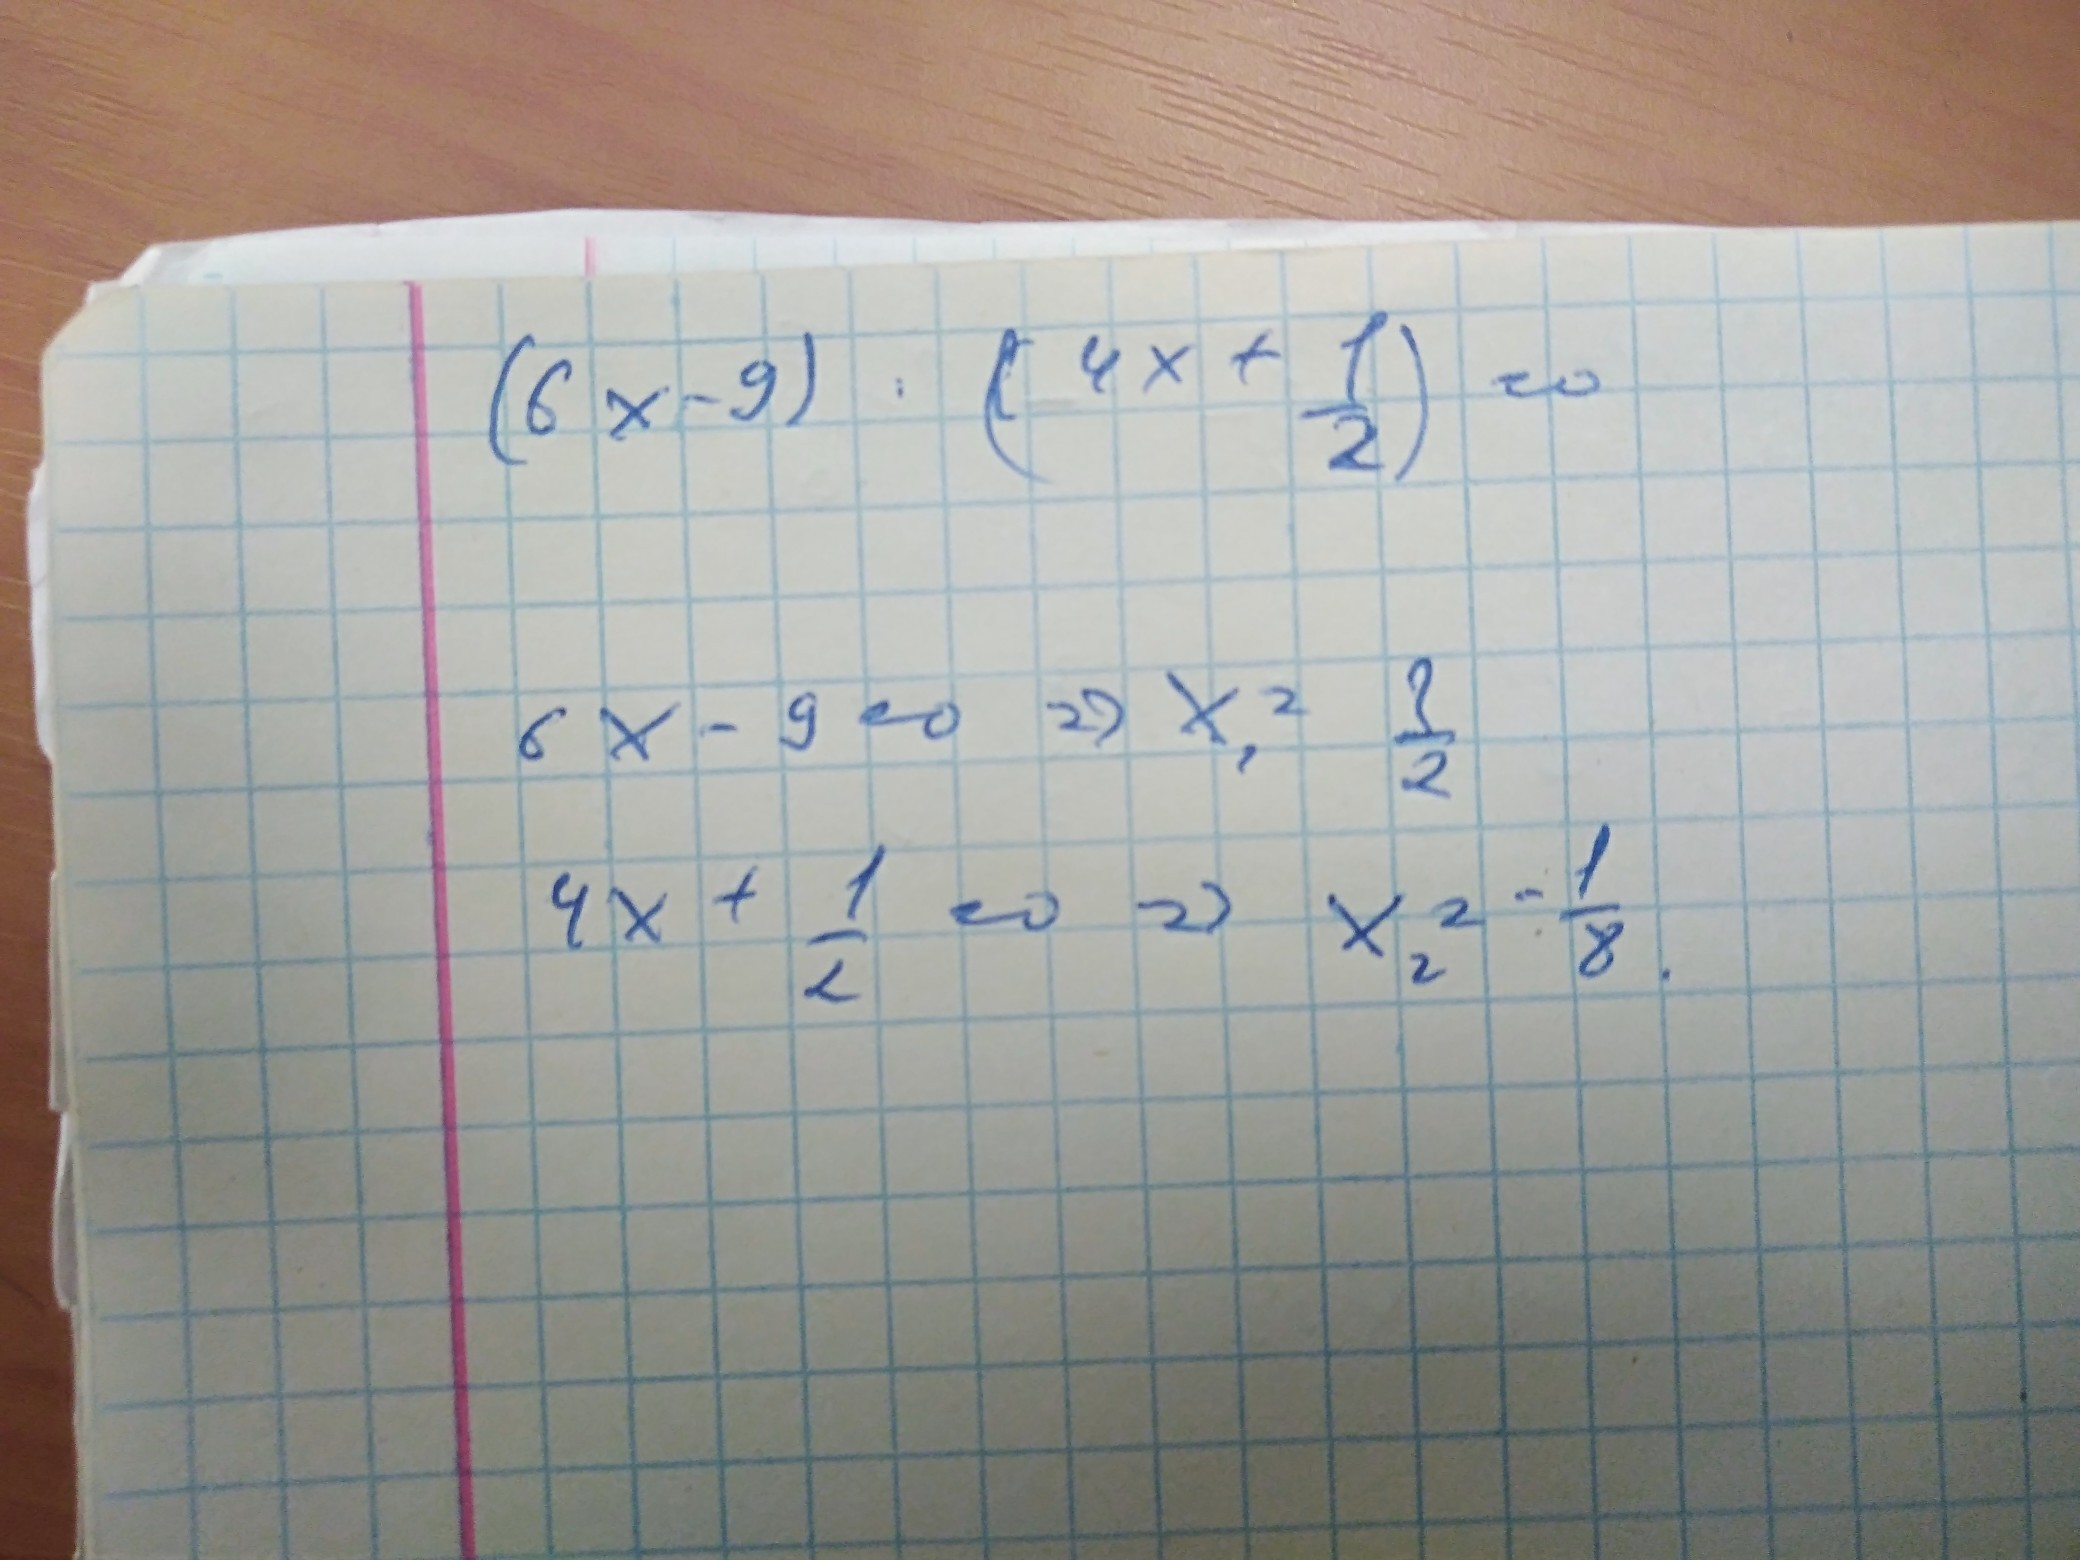 (6x-9) · (4x + 1/2) = 0
6x - 9 = 0 => x₁ = 3/2
4x + 1/2 = 0 => x₂ = -1/8.